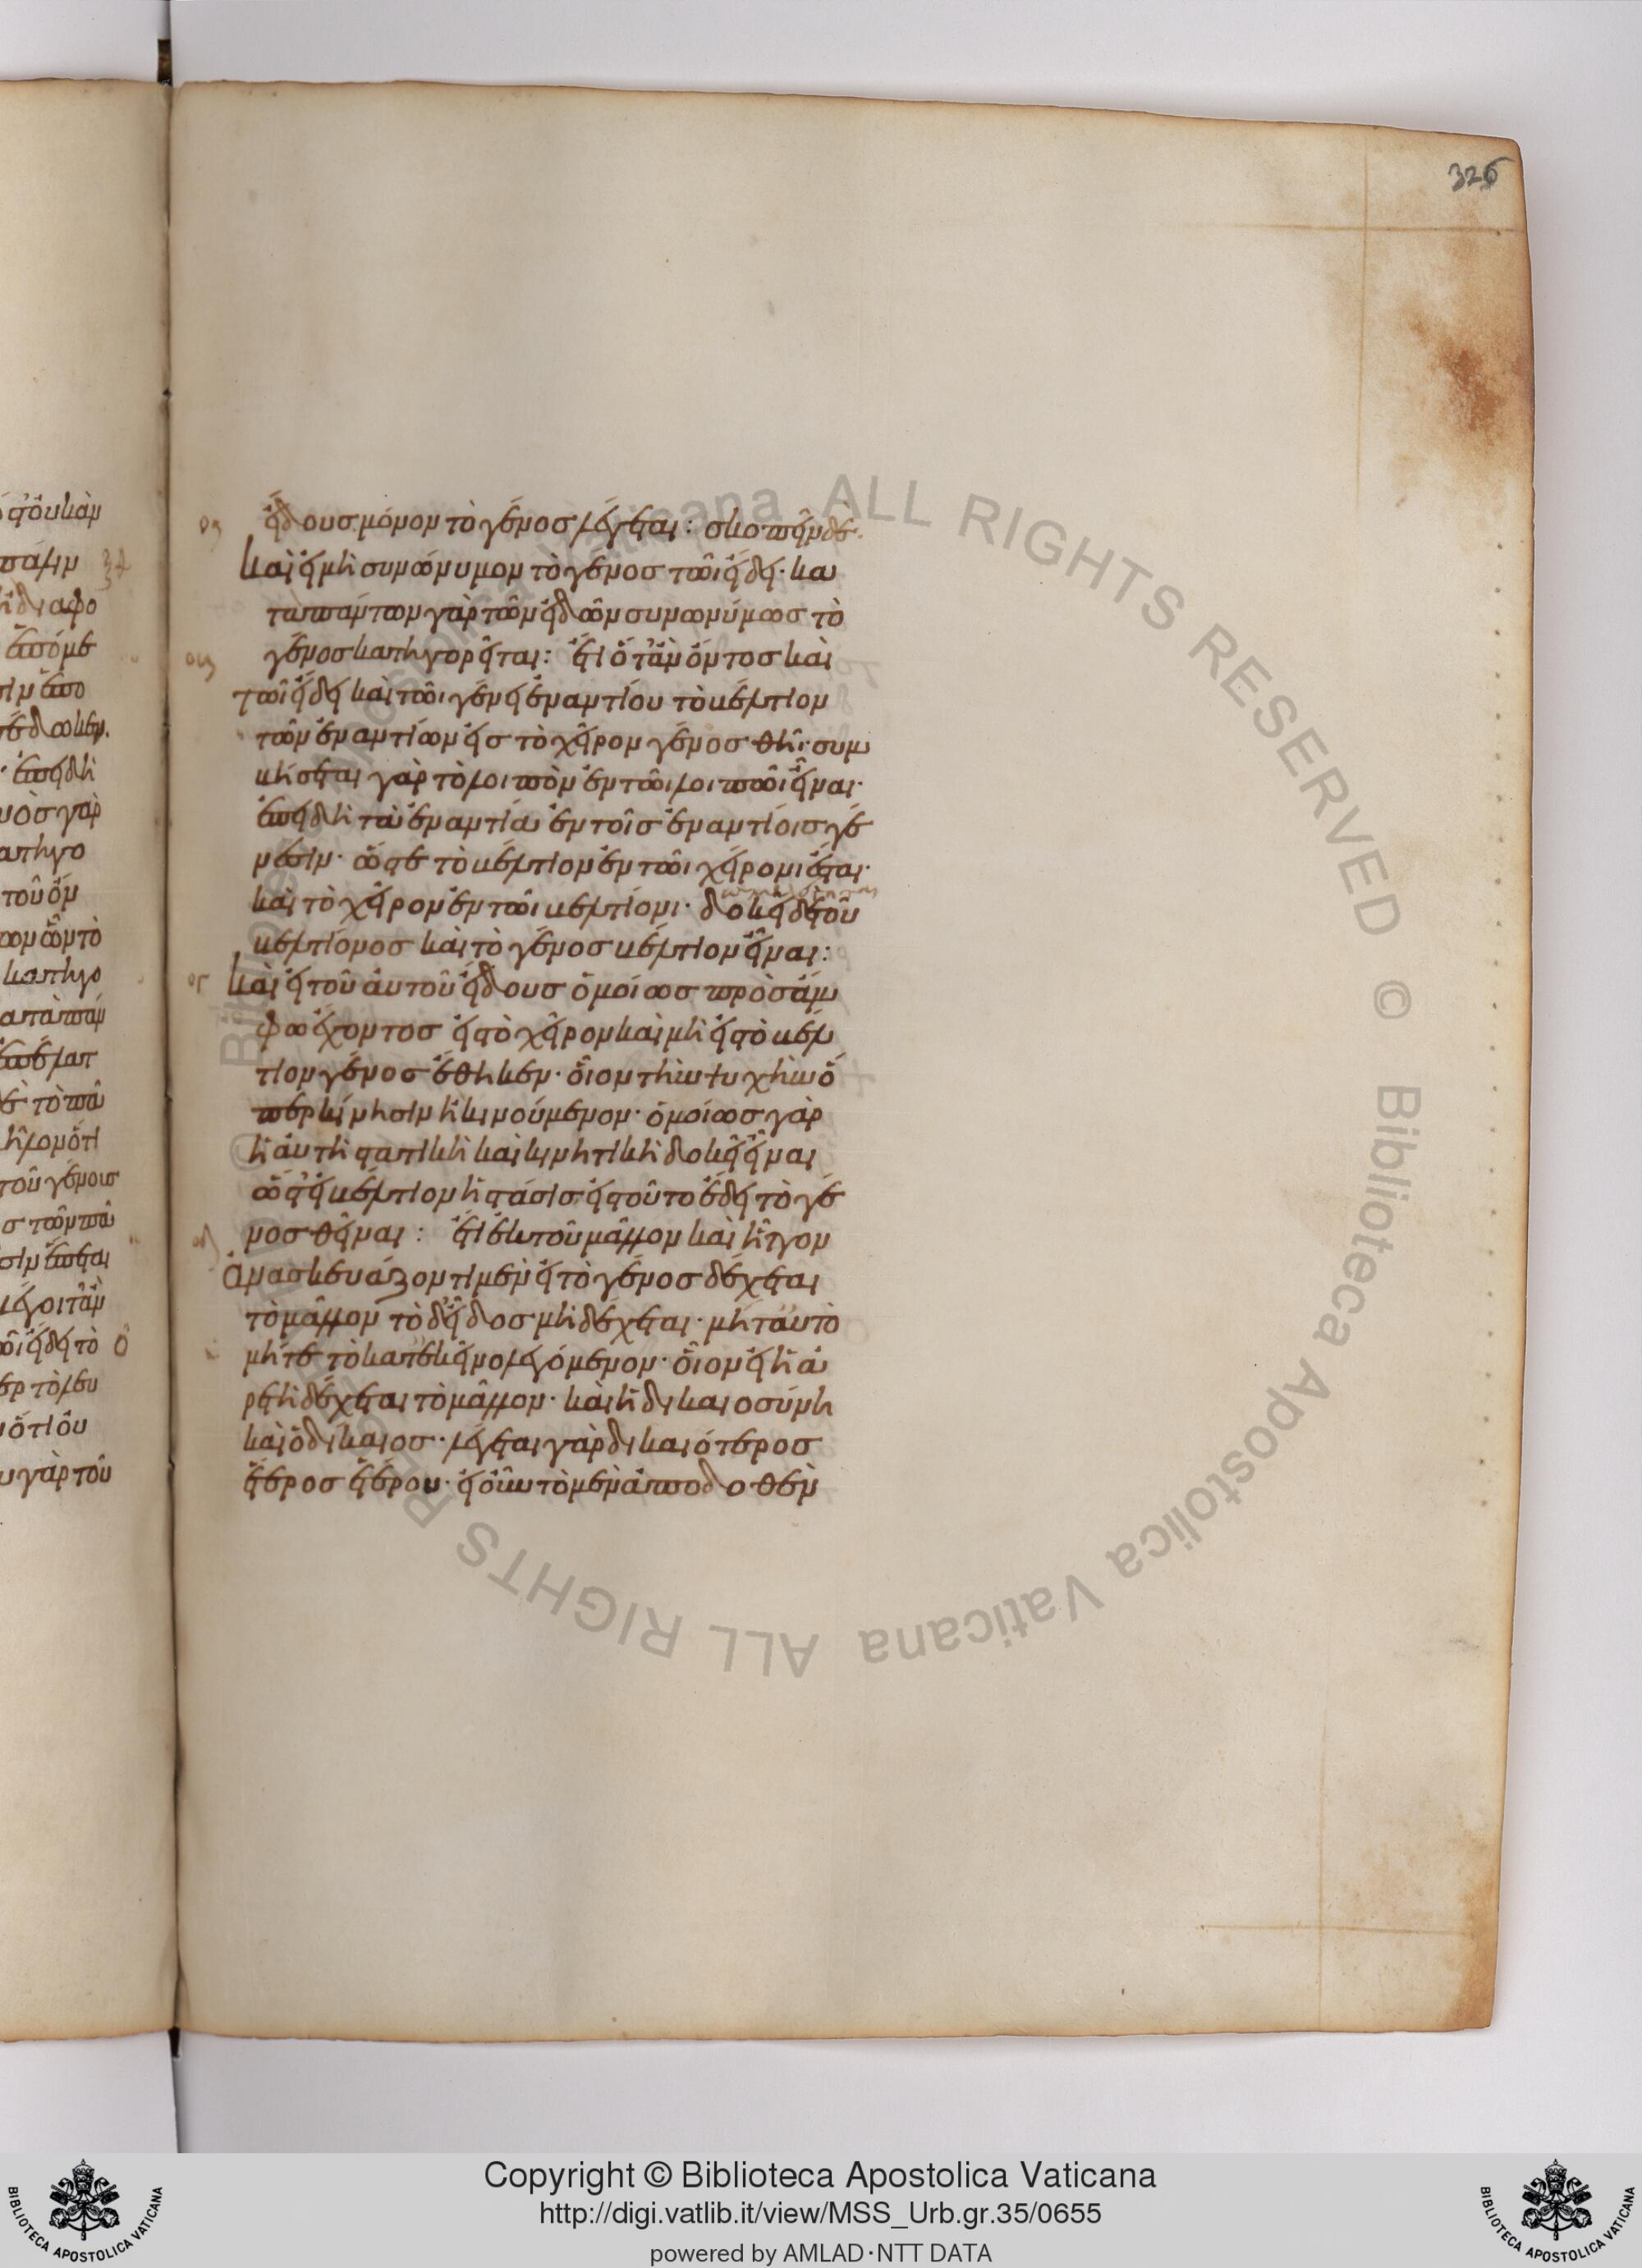 326
εἴδους μόνον τὸ γένος λέγεται: σκοπεῖν δὲ·
καὶ εἰ μὴ συνώνυμον τὸ γένος τῶι εἴδει· κα
τὰ πάντων γὰρ τῶν εἰδῶν συνωνύμως τὸ
γένος κατηγορεῖται: ἔτι ὅταν ὄντος καὶ
τῶι εἴδει καὶ τῶι γένει ἐναντίου τὸ βέλτιον
τῶν ἐναντίων εἰς τὸ χεῖρον γένος θῆι· συμ
βήσεται γὰρ τὸ λοιπὸν ἐν τῶι λοιπῶι εἶναι·
ἐπειδὴ τὰ ἐναντία ἐν τοῖς ἐναντίοις γέ
νεσιν· ὥστε τὸ βέλτιον ἐν τῶι χείρονι ἔσται·
καὶ τὸ χεῖρον ἐν τῶι βελτίονι· δοκεῖ δὲ τοῦ
βελτίονος καὶ τὸ γένος βέλτιον εἶναι:
καὶ εἰ τοῦ αὐτοῦ εἴδους ὁμοίως πρὸς ἄμ
φω ἔχοντος εἰς τὸ χεῖρον καὶ μὴ εἰς τὸ βέλ
τιον γένος ἔθηκεν· οἷον τὴν ψυχὴν ὅ
περ κίνησιν ἢ κινούμενον· ὁμοίως γὰρ
ἡ αὐτὴ στατικὴ καὶ κινητικὴ δοκεῖ εἶναι
ὥστ' εἰ βέλτιον ἡ στάσις εἰς τοῦτο ἔδει τὸ γέ
νος θεῖναι: ἔτι ἐκ τοῦ μᾶλλον καὶ ἧττον
ἀνασκευάζοντι μὲν εἰ τὸ γένος δέχεται
τὸ μᾶλλον τὸ δ' εἶδος μὴ δέχεται· μήτ' αὐτὸ
μήτε τὸ κατ' ἐκεῖνο λεγόμενον· οἷον εἰ ἡ ἀ
ρετὴ δέχεται τὸ μᾶλλον· καὶ ἡ δικαιοσύνη
καὶ ὁ δίκαιος· λέγεται γὰρ δικαιότερος
ἕτερος ἑτέρου· εἰ οὖν τὸ μὲν ἀποδοθὲν
Copyright © Biblioteca Apostolica Vaticana
http://digi.vatlib.it/view/MSS_Urb.gr.35/0655
powered by AMLAD·NTT DATA